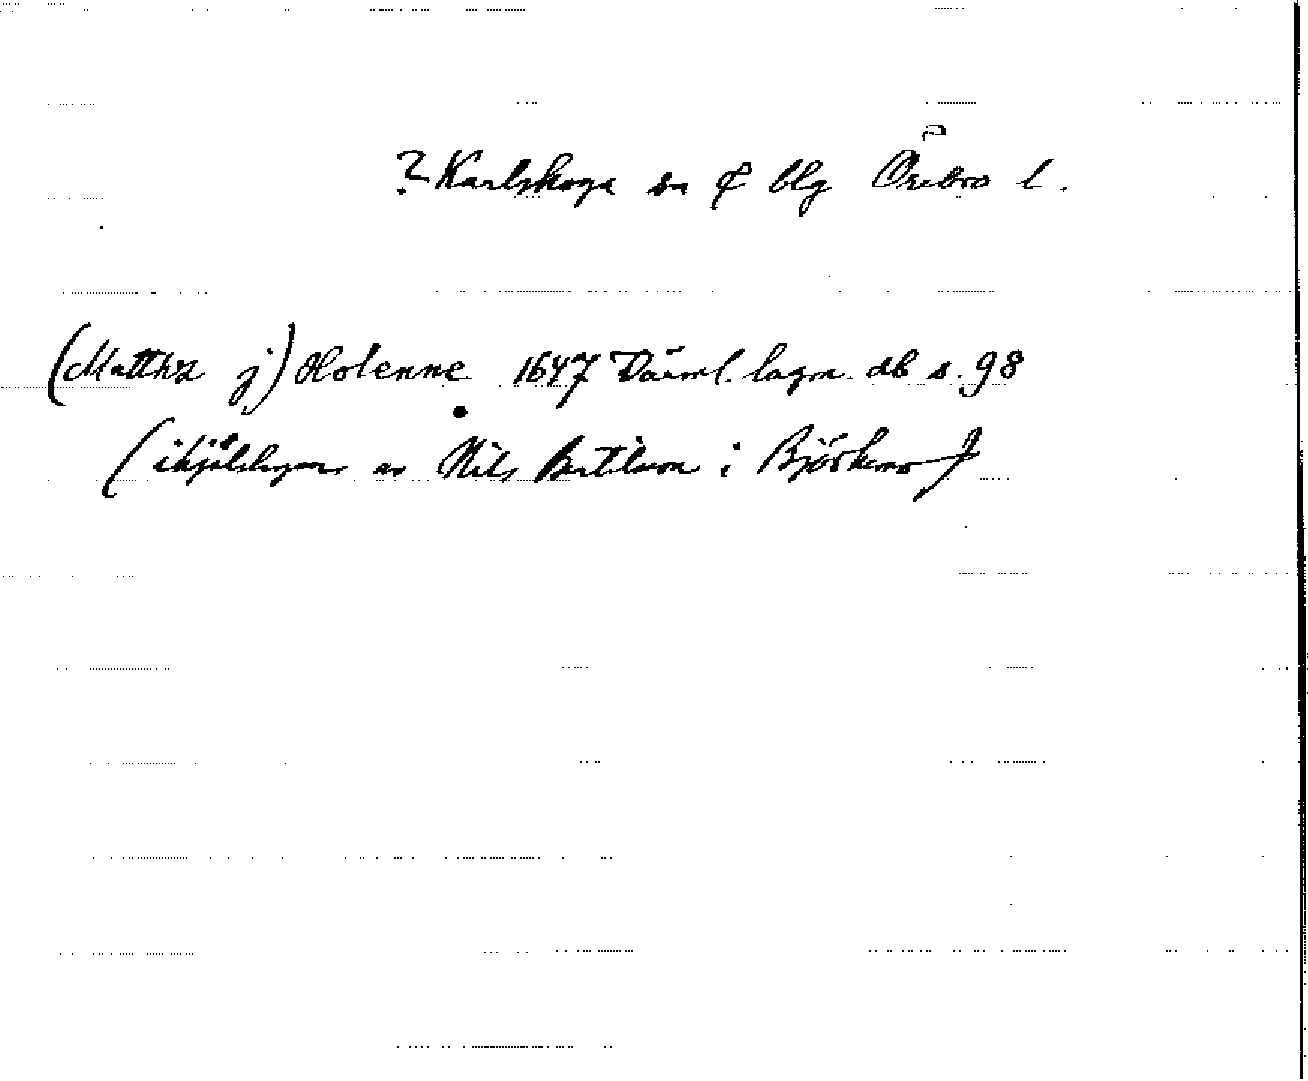 ? Karlskoga sn & blg Örebro l.
(Matthz j) Holenne 1647 Värml. lagm. db s. 98
(ihjälslagen av Nils Bertilsson i Björkmo)